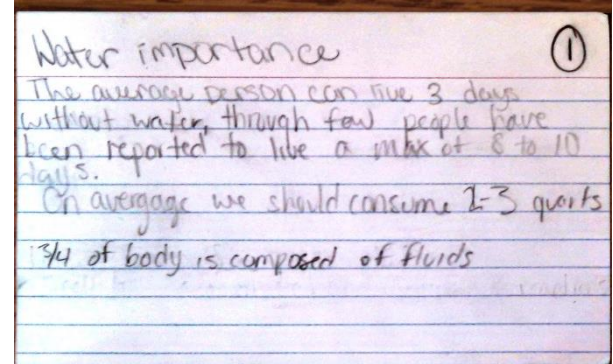 Water importance
1
The average person can live 3 days
without water, through few people have
been reported to live a max of 8 to 10
days.
On avergage we should consume 2-3 quarts
3/4 of body is composed of fluids